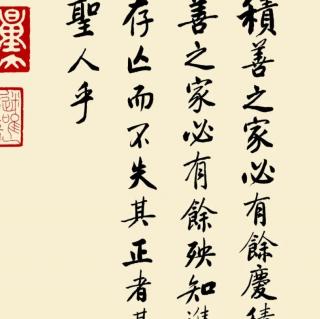 積善之家必有餘慶積
善之家必有餘殃知進
存亡而不失其正者其
聖人乎